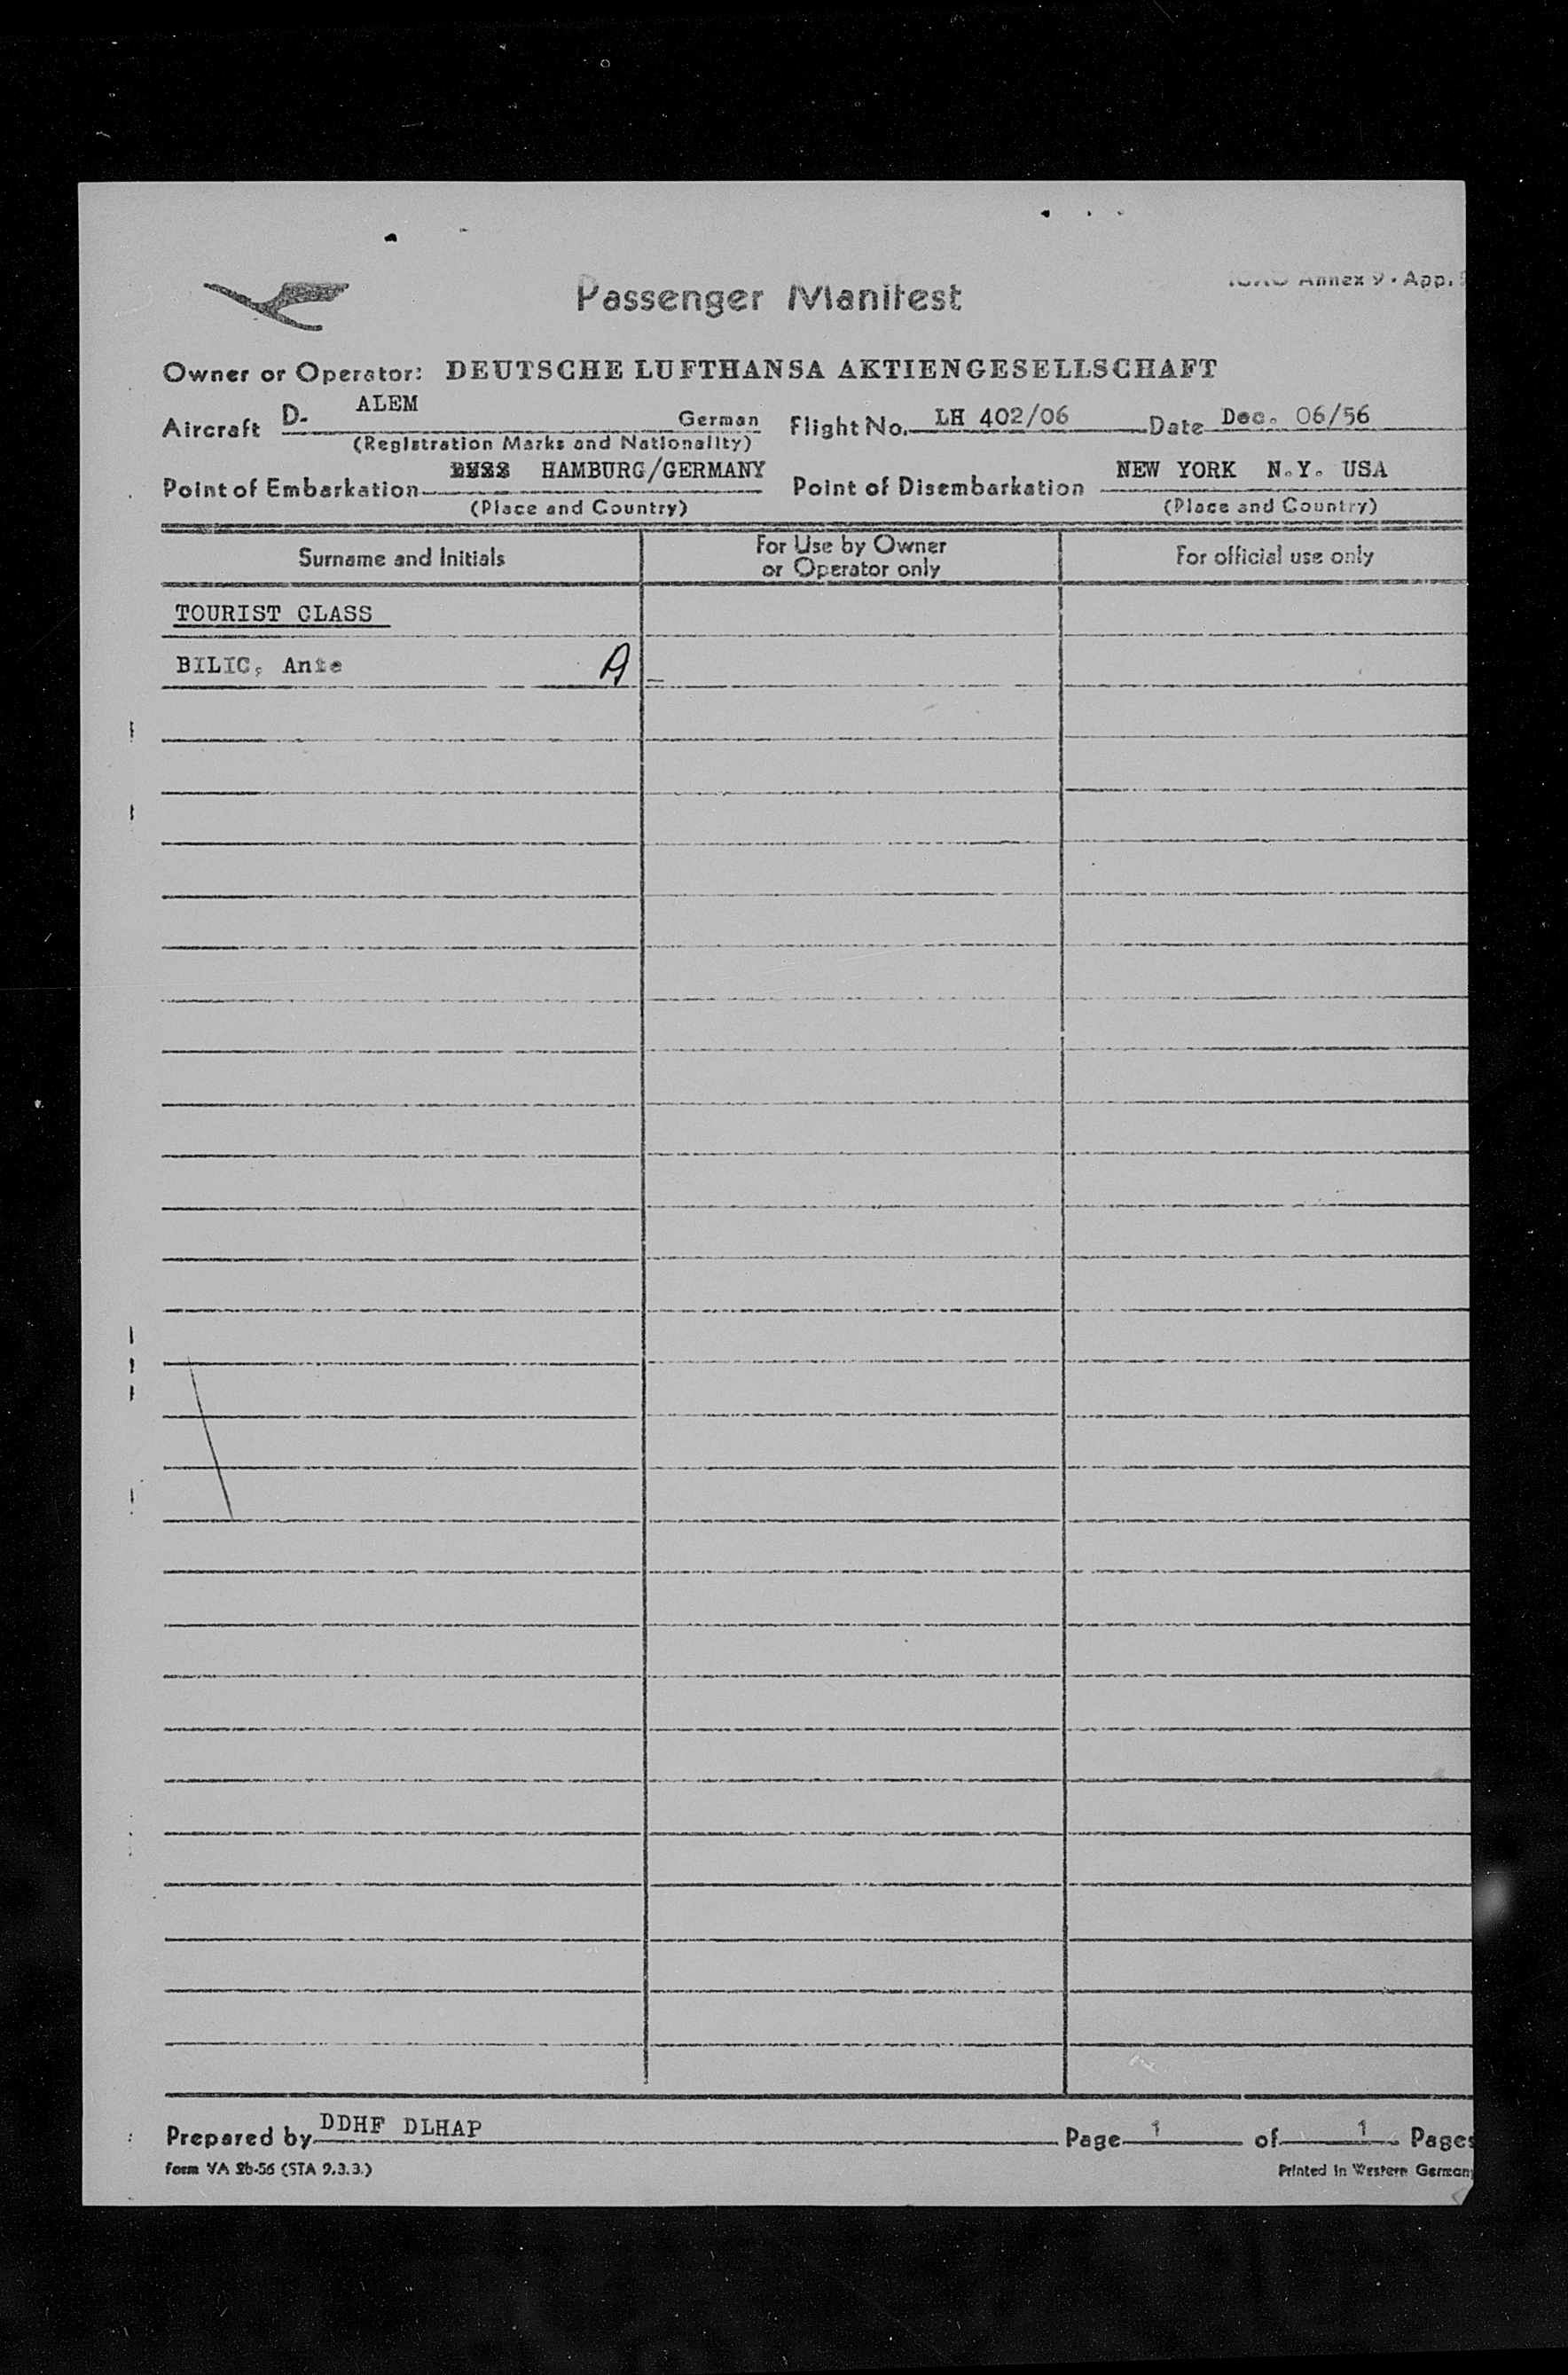 Passenger Manifest
ICAO Annex 9 · App.
Owner or Operator: DEUTSCHE LUFTHANSA AKTIENGESELLSCHAFT
Aircraft D- ALEM German Flight No. LH 402/06 Date Dec. 06/56
(Registration Marks and Nationality)
Point of Embarkation HAMBURG/GERMANY Point of Disembarkation NEW YORK N.Y. USA
(Place and Country) (Place and Country)
Surname and Initials For Use by Owner or Operator only For official use only
TOURIST CLASS
BILIC, Ante A
Prepared by DDHF DLHAP Page 1 of 1 Pages
Form VA 2b-56 (STA 9.3.3.) Printed in Western Germany